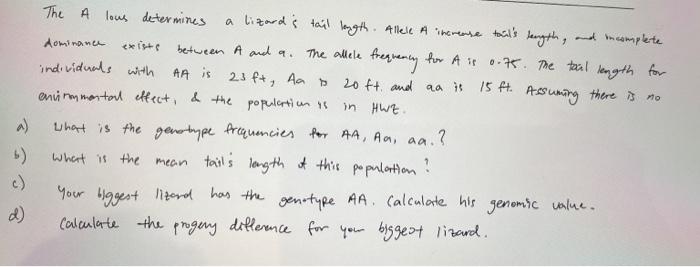 The A lous determines a lizard's tail length. Allele A increase tail's length, and incomplete
dominance exists between A and a. The allele frequency for A is 0.75. The tail length for
individuals with AA is 23 ft, Aa is 20 ft. and aa is 15 ft. Assuming there is no
environmental effect, & the population is in HWE.
a) What is the genotype frequencies for AA, Aa, aa.?
b) What is the mean tail's length of this population?
c) Your biggest lizard has the genotype AA. Calculate his genomic value.
d) Calculate the progeny difference for your biggest lizard.